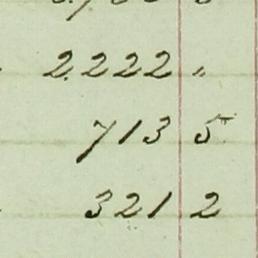 2222 "
713 5
321 2